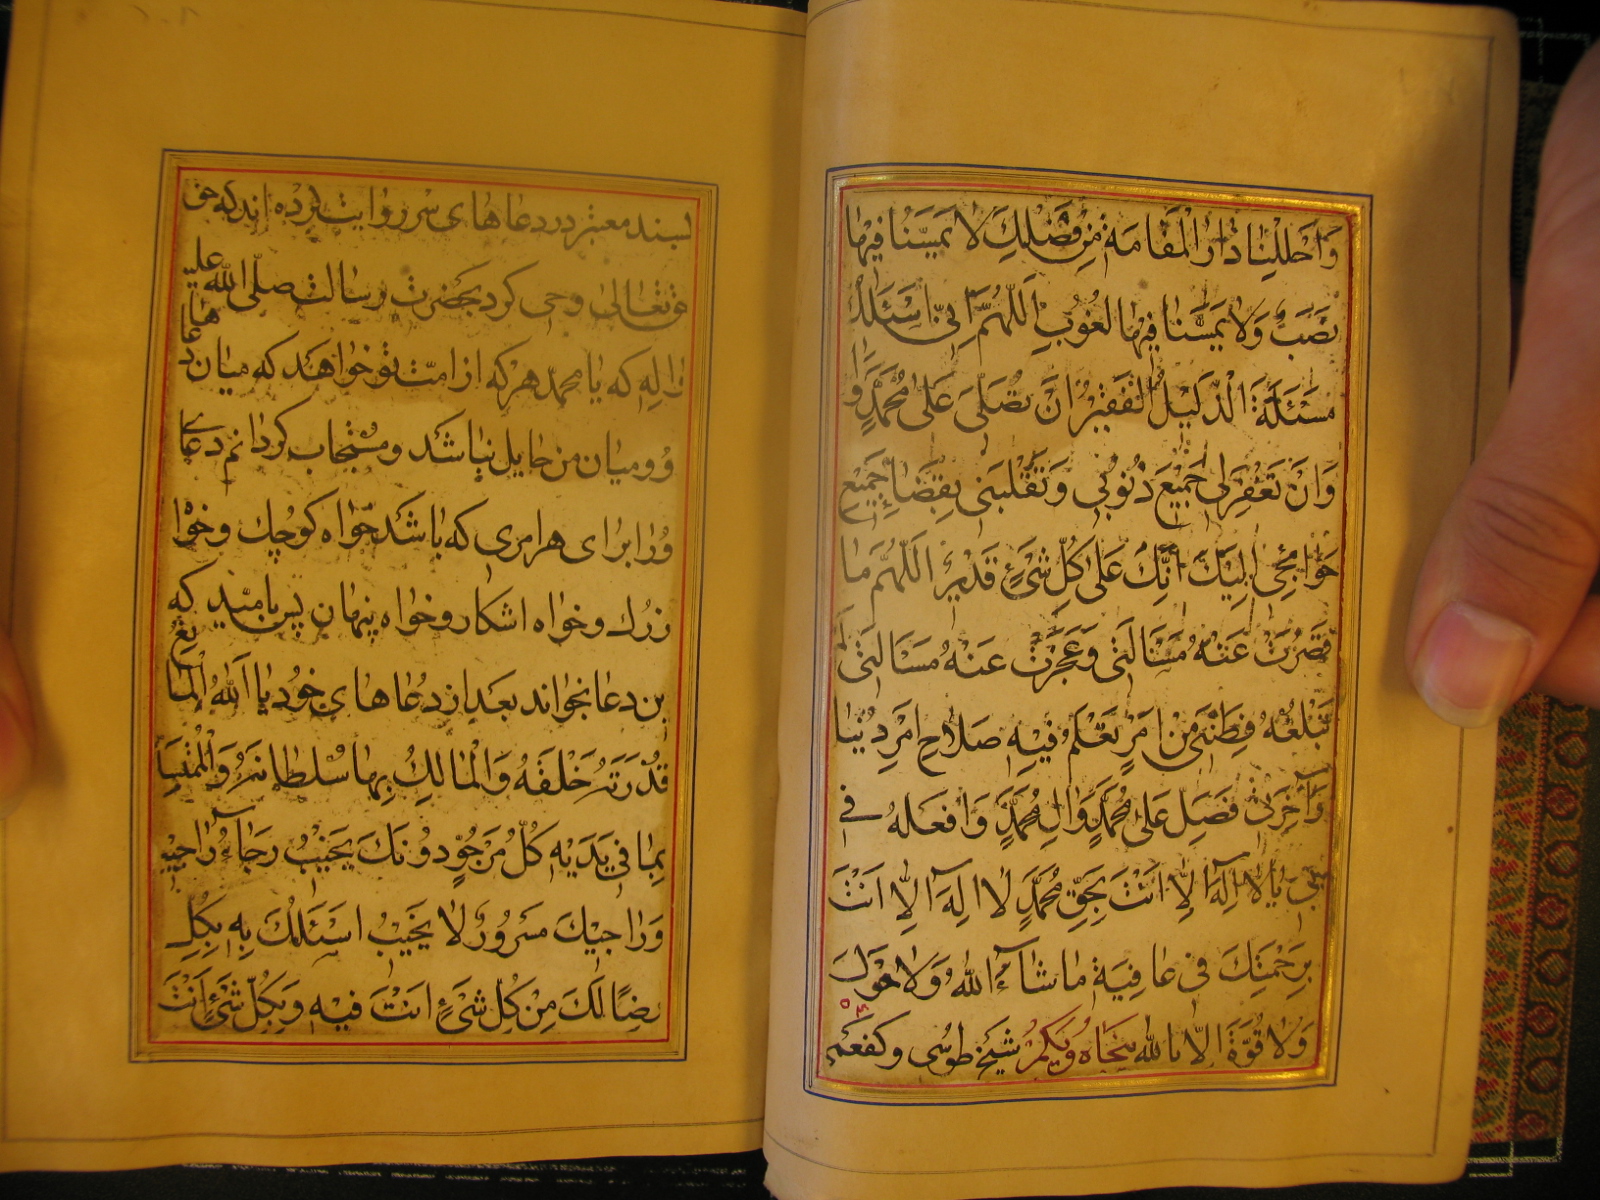 وَاَحْلِلْنا دارَ الْمُقامَةِ مِنْ فَضْلِكَ لا يَمَسُّنا فيها
نَصَبٌ وَلا يَمَسُّنا فيها لُغُوبٌ اَللّهُمَّ اِنّى اَسْئَلُكَ
مَسْئَلَةَ الذَّليلِ الْفَقيرِ اَنْ تُصَلِّىَ عَلى مُحَمَّدٍ وَالِ
وَاَنْ تَغْفِرَلى جَميعَ ذُنُوبى وَتَقْلِبَنى بِقَضاءِ جَميعِ
حَوائِجى اِلَيْكَ اِنَّكَ عَلى كُلِّ شَىْءٍ قَديرٌ اَللّهُمَّ ما
قَصُرَتْ عَنْهُ مَسْاَلَتى وَعَجَزَتْ عَنْهُ مَسْاَلَتى وَلَمْ
تَبْلُغْهُ فِطْنَتى مِنْ اَمْرٍ تَعْلَمُ فيهِ صَلاحَ اَمْرِ دُنْيا
وَآخِرَتى فَصَلِّ عَلى مُحَمَّدٍ وَالِ مُحَمَّدٍ وَافْعَلْهُ فى
يا لا اِلهَ اِلّا اَنْتَ بِحَقِّ مُحَمَّدٍ لا اِلهَ اِلّا اَنْتَ
بِرَحْمَتِكَ فى عافِيَةٍ ما شاءَ اللهُ وَلا حَوْلَ
وَلا قُوَّةَ اِلّا بِاللهِ پنجاه ويكم شيخ طوسى وكفعمى
بسند معتبر در دعاهاى سر روايت كرده اند كه حق
تعالى وحى كرد بحضرت رسالت صلّى الله عليه
واله كه يا محمد هر كه از امّت تو خواهد كه ميان دعاها
و و ميان من حايل نباشد و مستجاب كردانم دعاى
ورا براى هر امرى كه باشد خواه كوچك وخواه
بزرك وخواه اشكار وخواه پنهان پس بايد كه
ين دعا بخواند بعد از دعاهاى خود يا اَللهُ الْمانِعُ
قُدْرَتُهُ خَلْقَهُ وَالْمالِكُ بِها سُلْطانَهُ وَالْمُتَسَلِّطُ
بِما فى يَدَيْهِ كُلُّ مَرْجُوٍّ دُونَكَ يَخيبُ رَجاءُ راجيهِ
وَراجيكَ مَسْرُورٌ لا يَخيبُ اَسْئَلُكَ بِه بِكُلِّ
رِضًا لَكَ مِنْ كُلِّ شَىْءٍ اَنْتَ فيهِ وَبِكُلِّ شَىْءٍ اَنْتَ